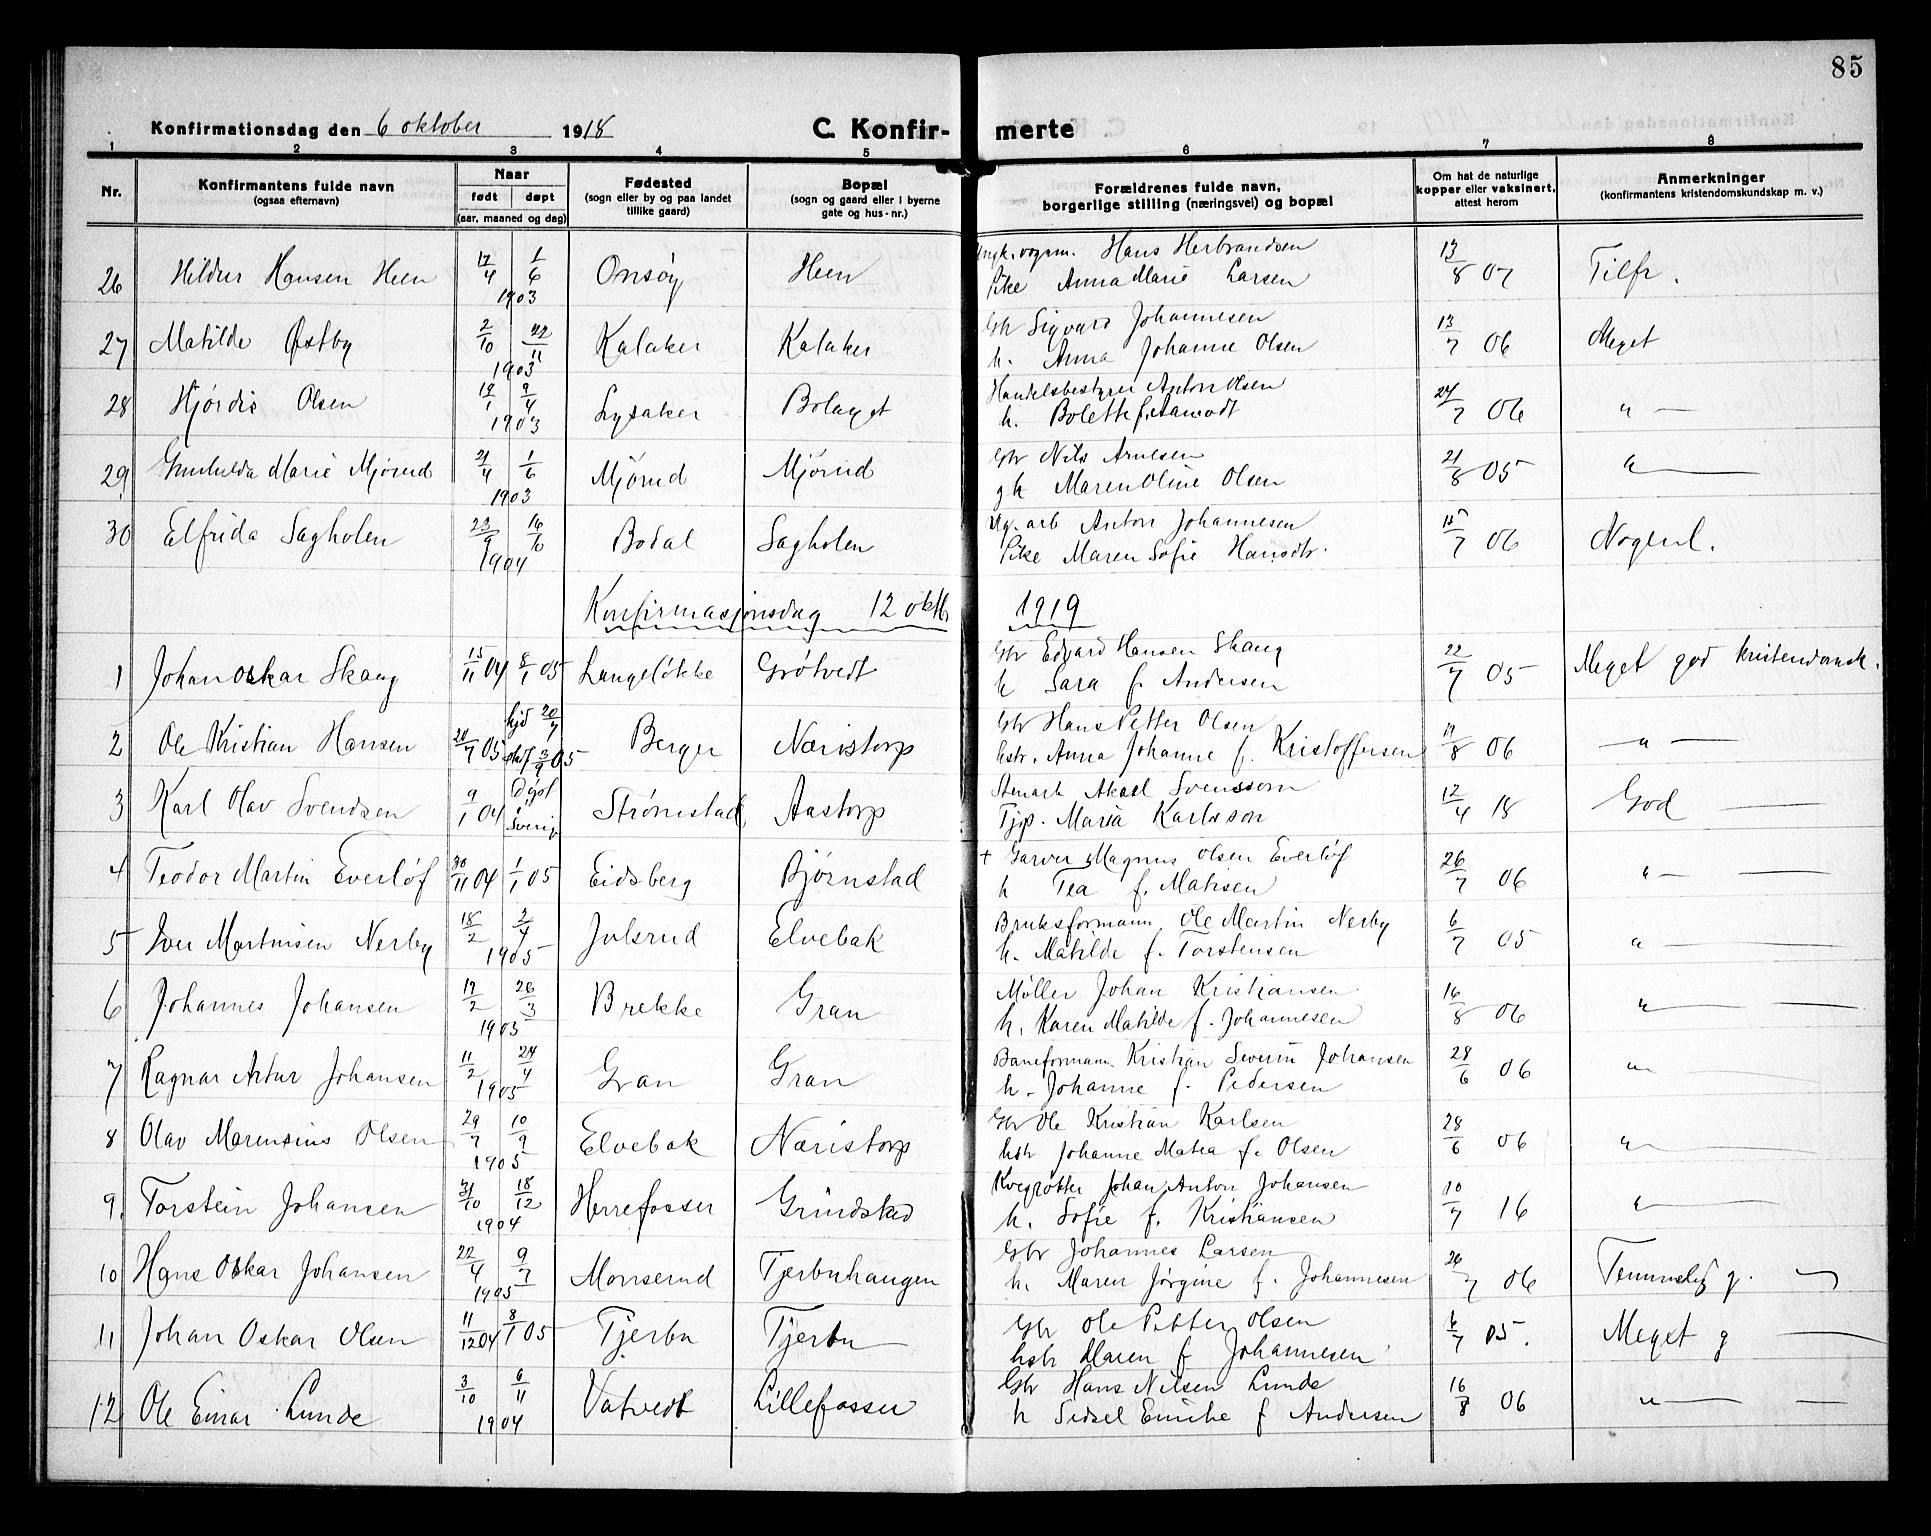 85
Konfirmationsdag den 6 oktober 1918 C. Konfir- merte
1 2 3 4 5 6 7 8
Nr. Konfirmantens fulde navn (ogsaa efternavn) Naar født døpt (aar, maaned og dag) Fødested (sogn eller by og paa landet tillike gaard) Bopæl (sogn og gaard eller i byerne gate og hus-nr.) Forældrenes fulde navn, borgerlige stilling (næringsvei) og bopæl Om hat de naturlige kopper eller vaksinert, attest herom Anmerkninger (konfirmantens kristendomskundskap m. v.)
26 Hildur Hansen Heen 17/4 1/6 1903 Onsøy Heen Hans Herbrandsen 13/8 07 Tilfr.
Pike Anna Marie Larsen
27 Matilde Østby 2/10 22/11 1903 Kalaker Kalaker Gbr Sigvard Johannesen 13/7 06 Meget
h. Anna Johanne Olsen
28 Hjørdis Olsen 12/1 9/4 1903 Lysaker Bolaget Handelsbestyrer Anton Olsen 24/7 06 " —
h. Bolette f. Aamodt
29 Gunhilda Marie Mjørud 21/4 1/6 1903 Mjørud Mjørud Gbr Nils Arnesen 21/8 05 " —
gh Maren Oline Olsen
30 Elfrida Sagholen 23/9 16/10 1904 Bodal Sagholen Ug. arb Anton Johannesen 15/7 06 Nogenl.
Pike Maren Sofie Hansdtr.
Konfirmasjonsdag 12 oktb. 1919
1 Johan Oskar Skaug 15/11 04 8/1 05 Langeløkke Grøtvedt Gbr Edvard Hansen Skaug 22/7 05 Meget god kristendomsk.
h Sara f. Andersen
2 Ole Kristian Hansen 20/7 05 hjd 20/7 stadf 3/9 05 Berger Næristorp Gbr Hans Petter Olsen 19/8 06 — " —
hstr. Anna Johanne f. Kristoffersen
3 Karl Olav Svendsen 9/1 04 Døpt i Sverig Strömstad Aastorp Stenarb Aksel Svensson 12/4 18 God —
Tjp. Maria Karlsson
4 Teodor Martin Everløf 30/11 04 1/1 05 Eidsberg Bjørnstad + Garver Magnus Olsen Everløf 26/7 06 " — —
h Tea f. Matisen
5 Iver Martinsen Nerby 18/2 2/4 1905 Julsrud Elvebak Bruksformann Ole Martin Nerby 6/7 05 " — —
h. Matilde f. Torstensen
6 Johannes Johansen 17/2 26/3 1905 Brekke Gran Møller Johan Kristiansen 16/8 06 " — —
h. Karen Matilde f. Johannesen
7 Ragnar Artur Johansen 11/2 24/4 1905 Gran Gran Baneformann Kristian Severin Johansen 28/6 06 " —
h. Johanne f. Pedersen
8 Olav Marensius Olsen 29/7 10/9 1905 Elvebak Næristorp Gbr Ole Kristian Karlsen 28/6 06 " —
hstr Johanne Matea f. Olsen
9. Torstein Johansen 31/10 18/12 1904 Herrefosser Grindstad Kvegrøkter Johan Anton Johansen 10/7 16 " —
h. Sofie f. Kristiansen
10 Hans Oskar Johansen 22/4 9/7 1905 Monserud Tjerbuhaugen Gbr Johannes Larsen 26/7 06 Temmelig g. —
h. Maren Jørgine f. Johannesen
11 Johan Oskar Olsen 11/12 04 8/1 05 Tjerbu Tjerbu Gbr Ole Petter Olsen 6/7 05. Meget g —
hstr Maren f Johannesen
12 Ole Einar Lunde 3/10 6/11 1904 Vatvedt Lillefosser Gbr Hans Nilsen Lunde 16/8 06 " — —
h Sidsel Emilie f Andersen